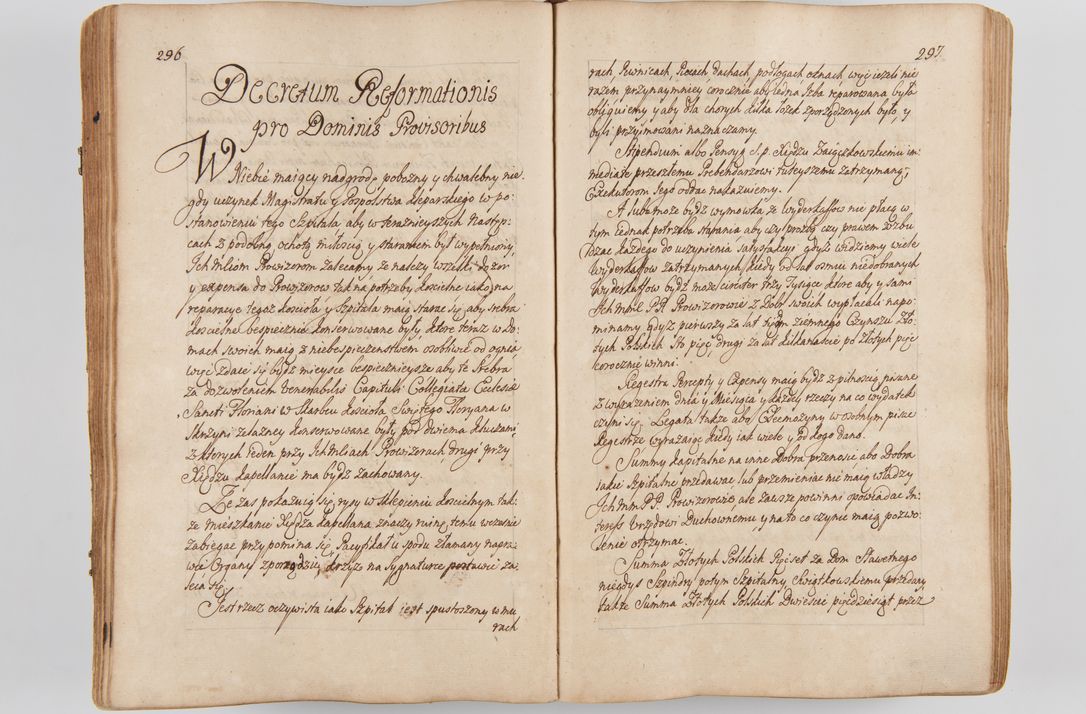 296
Decretum Reformationis
pro Dominis Provisoribus
W Niebie maiący nadgrodę pobozny y chwalebny nie-
gdy uczynek Magistratu y Pospolstwa Kleparskiego w po-
stanowieniu tego Szpitala aby w teraznieyszych następ-
cach z podobną ochotą miłoscią y staraniem był wypełniony
Ich Mciom Prowizorom zalecamy ze nalezy wszelki dozor
y expensa do Prowizorow tak na potrzeby koscielne iako y na
reparacye tegoz koscioła y Szpitala maią starac się, aby srebra
koscielne bespiecznie konserwowane były, ktore teraz w Do-
mach swoich maią z niebespieczenstwem osobliwie od ognia,
więc zdaie się bydz mieysce bespiecznieysze aby te srebra
za dozwoleniem Venerabilis Capituli Collegiatæ Ecclesiæ
Sancti Floriani w Skarbcu koscioła Swiętego Floryana w
Skrzyni zelazney konserwowane były pod dwiema kluczami,
z ktorych ieden przy Ich Mciach Prowizorach, drugi przy
Xiędzu Kapellanie ma bydz zachowany.
Ze zas pokazuią się rysy w sklepieniu koscielnym tak-
ze mieszkanie Xiędza Kapellana znaczy ruinę, temu wczesnie
zabiegac przypomina się, Pacyfikał u spodu złamany napra-
wic Organy zporządzic, krzyz na sygnaturce postawic za-
leca się.
Jest rzecz oczywista iako Szpital iest spustoszony w mu
rach
297
rach, Piwnicach, Piecach, Dachach, podłogach, oknach, więc iezeli nie
razem przynaymniey corocznie aby iedna Izba reparowana była
obliguiemy, y aby dla chorych kilka łozek zporządzonych było, y
byli przyimowani naznaczamy.
Stipendium albo Pensyą S. p. Xiędzu Zaiączkowskiemu im-
mediate przeszłemu Prebendarzowi tuteyszemu zatrzymaną,
Exekutorom Jego oddac nakazuiemy.
A lubo moze bydz wymowka, ze wyderkaffow nie płacą w
tym iednak potrzeba starania aby czy prozbą czy prawem wzbu-
dzac kazdego do uczynienia satysfakcyi gdyz widziemy wiele
Wyderkaffow zatrzymanych, kiedy od lat osmiu niedobranych
Wyderkaffow bydz moze circiter trzy Tysiące, ktore aby y sami
Ich Mmć PP. Prowizorowie z Dobr swoich wypłacali napo-
minamy, gdyz pierwszy za lat siedm ziemnego Czynszu Zło-
tych Polskich sto pięc, drugi za lat kilkanascie po złotych pięc
corocznie winni.
Regestra Percepty y Expensy maią bydz z pilnoscią pisane
z wyrazeniem dnia y Miesiąca y kazdey rzeczy na co wydatek
czyni się. Legata takze abo Eleemozyny w osobnym pisac
Regestrze wyrazaiąc kiedy iak wiele y od kogo dano.
Summy kapitalne na inne Dobra przenosic abo Dobra
iakie szpitalne przedawac, lub przemieniac nie maią władzy
Ich Mmć PP. Prowizorowie, ale zawsze powinni opowiadac In-
teress Urzędowi Duchownemu, y na to co czynic maią pozwo-
lenie otrzymac.
Summa Złotych Polskich Pięcset za Dom Sławetnego
niegdys Szpindry potym Szpitalny Swiątkowskiemu przedany
takze Summa Złotych Polskich Dwiescie pięcdziesiąt przez